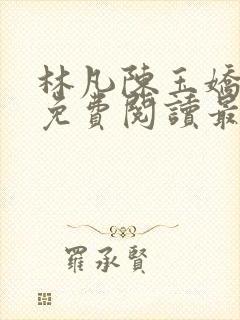 林凡陳玉嬌
免費閱讀最
羅承賢